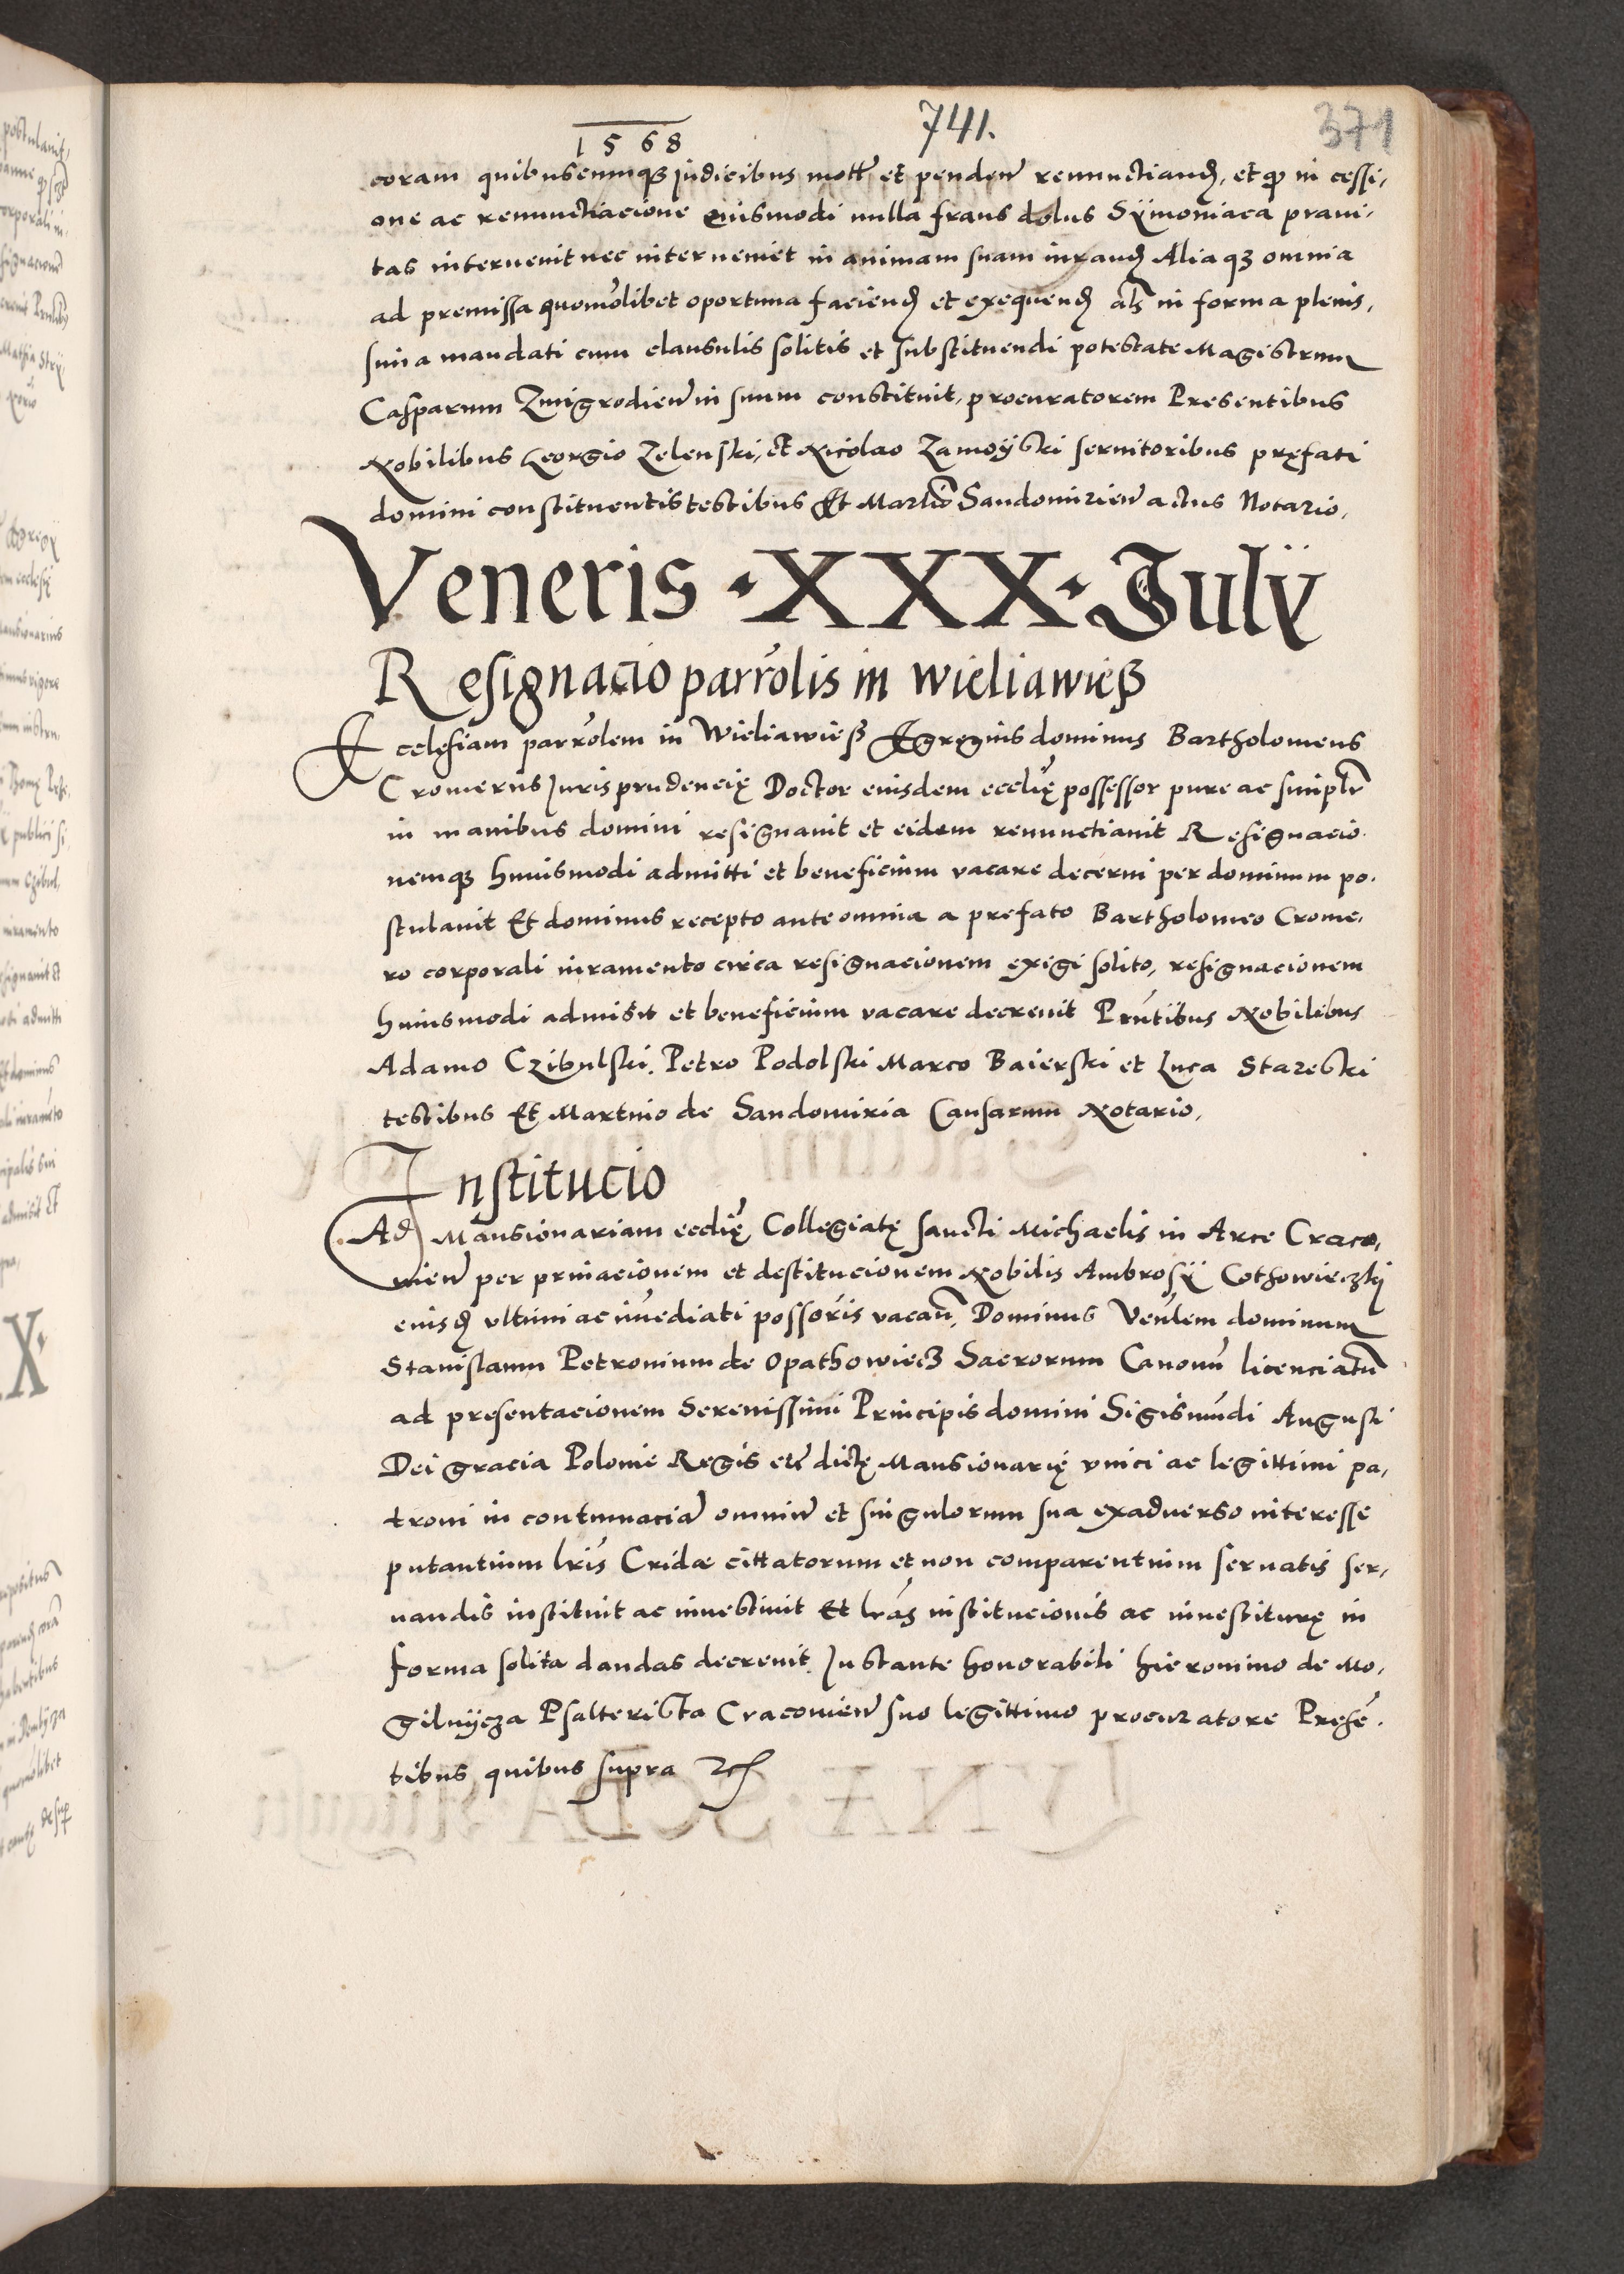 1568
741.
371
coram quibuscumqꝫ iudicibus mott̃ et penden̄ renunctiand̃, et qp̱ in cessi,
one ac renunctiacione eiusmodi nulla fraus dolus Sÿmoniaca praui,
tas interuenit nec interueniet in animam suam iurand̃ Aliaqꝫ omnia
ad premissa quomo̊libet oportuna faciend̃ et exequend̃ al̃s in forma plenis,
sima mandati cum clausulis solitis et substituendi potestate Magistrum
Casparum Zmigrodien̄ in suum constituit, procuratorem Presentibus
Nobilibus Georgio Zelenski, et Nicolao Zamoÿski seruitoribus pręfati
domini constituentis testibus Et Martĩo Sandomirien̄ actus Notario,
Veneris · XXX · Julÿ
Resignacio parro̊lis in Wieliawieß
Ecclesiam parro̊lem in Wieliawieß Egregius dominus Bartholomeus
Cromerus Iuris prudencię Doctor eiusdem ecclię possessor pure ac simpl̃r
in manibus domini resignauit et eidem renunctiauit Resignacio
nemqꝫ huiusmodi admitti et beneficium vacare decerni per dominum po,
stulauit Et dominus recepto ante omnia a prefato Bartholomeo Crome,
ro corporali iuramento circa resignacionem exigi solito, resignacionem
huiusmodi admisit et beneficium vacare decreuit Prn̄tibus Nobilibus
Adamo Czibulski. Petro Podolski Marco Baierski et Luca Starebski
testibus Et Martino de Sandomiria Causarum Notario,
Institucio
Ad Mansionariam ecclię Collegiatę sancti Michaelis in Arce Craco,
uien̄ per priuacionem et destitucionem Nobilis Ambrosÿ Cothowieczkj
eiusd̃ vltimi ac im̄ediati possõris vacan̄, Dominus Ven̄lem dominum
Stanislaum Petronium de Opathowiecz Sacrorum Canonū licenciatū
ad presentacionem Serenissimi Principis domini Sigismūdi Augusti
Dei gracia Polonie Regis etc̄ dictę Mansionarię vnici ac legittimi pa,
troni in contumaciā omniū et singulorum sua exaduerso interesse
putantium lr̃is Cridæ cittatorum et non comparentium seruatis ser,
uandis instituit ac inuestiuit Et lr̃as institucionis ac inuestiturę in
forma solita dandas decreuit. Instante honorabili hieronimo de Mo,
gilnÿcza Psalterista Cracouien̄ suo legittimo procuratore Presē,
tibus quibus supra ꝛc̃